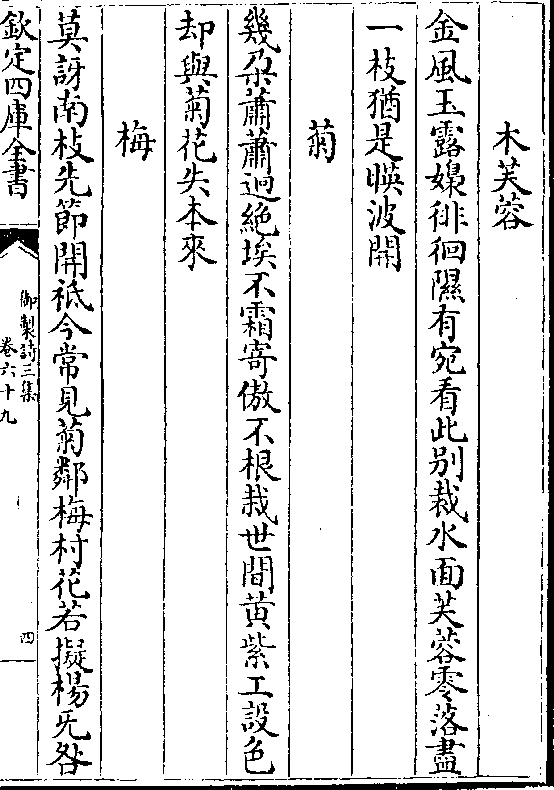 木芙蓉
金風玉露嬝徘徊隰有宛看此别裁水面芙蓉零落盡
一枝猶是暎波開
菊
幾朶蕭蕭逈絶埃不霜寄傲不根栽世間黄紫工設色
却與菊花失本來
梅
莫訝南枝先節開祗今常見菊鄰梅村花若擬楊无咎
欽定四庫全書
御製詩三集
卷六十九
四